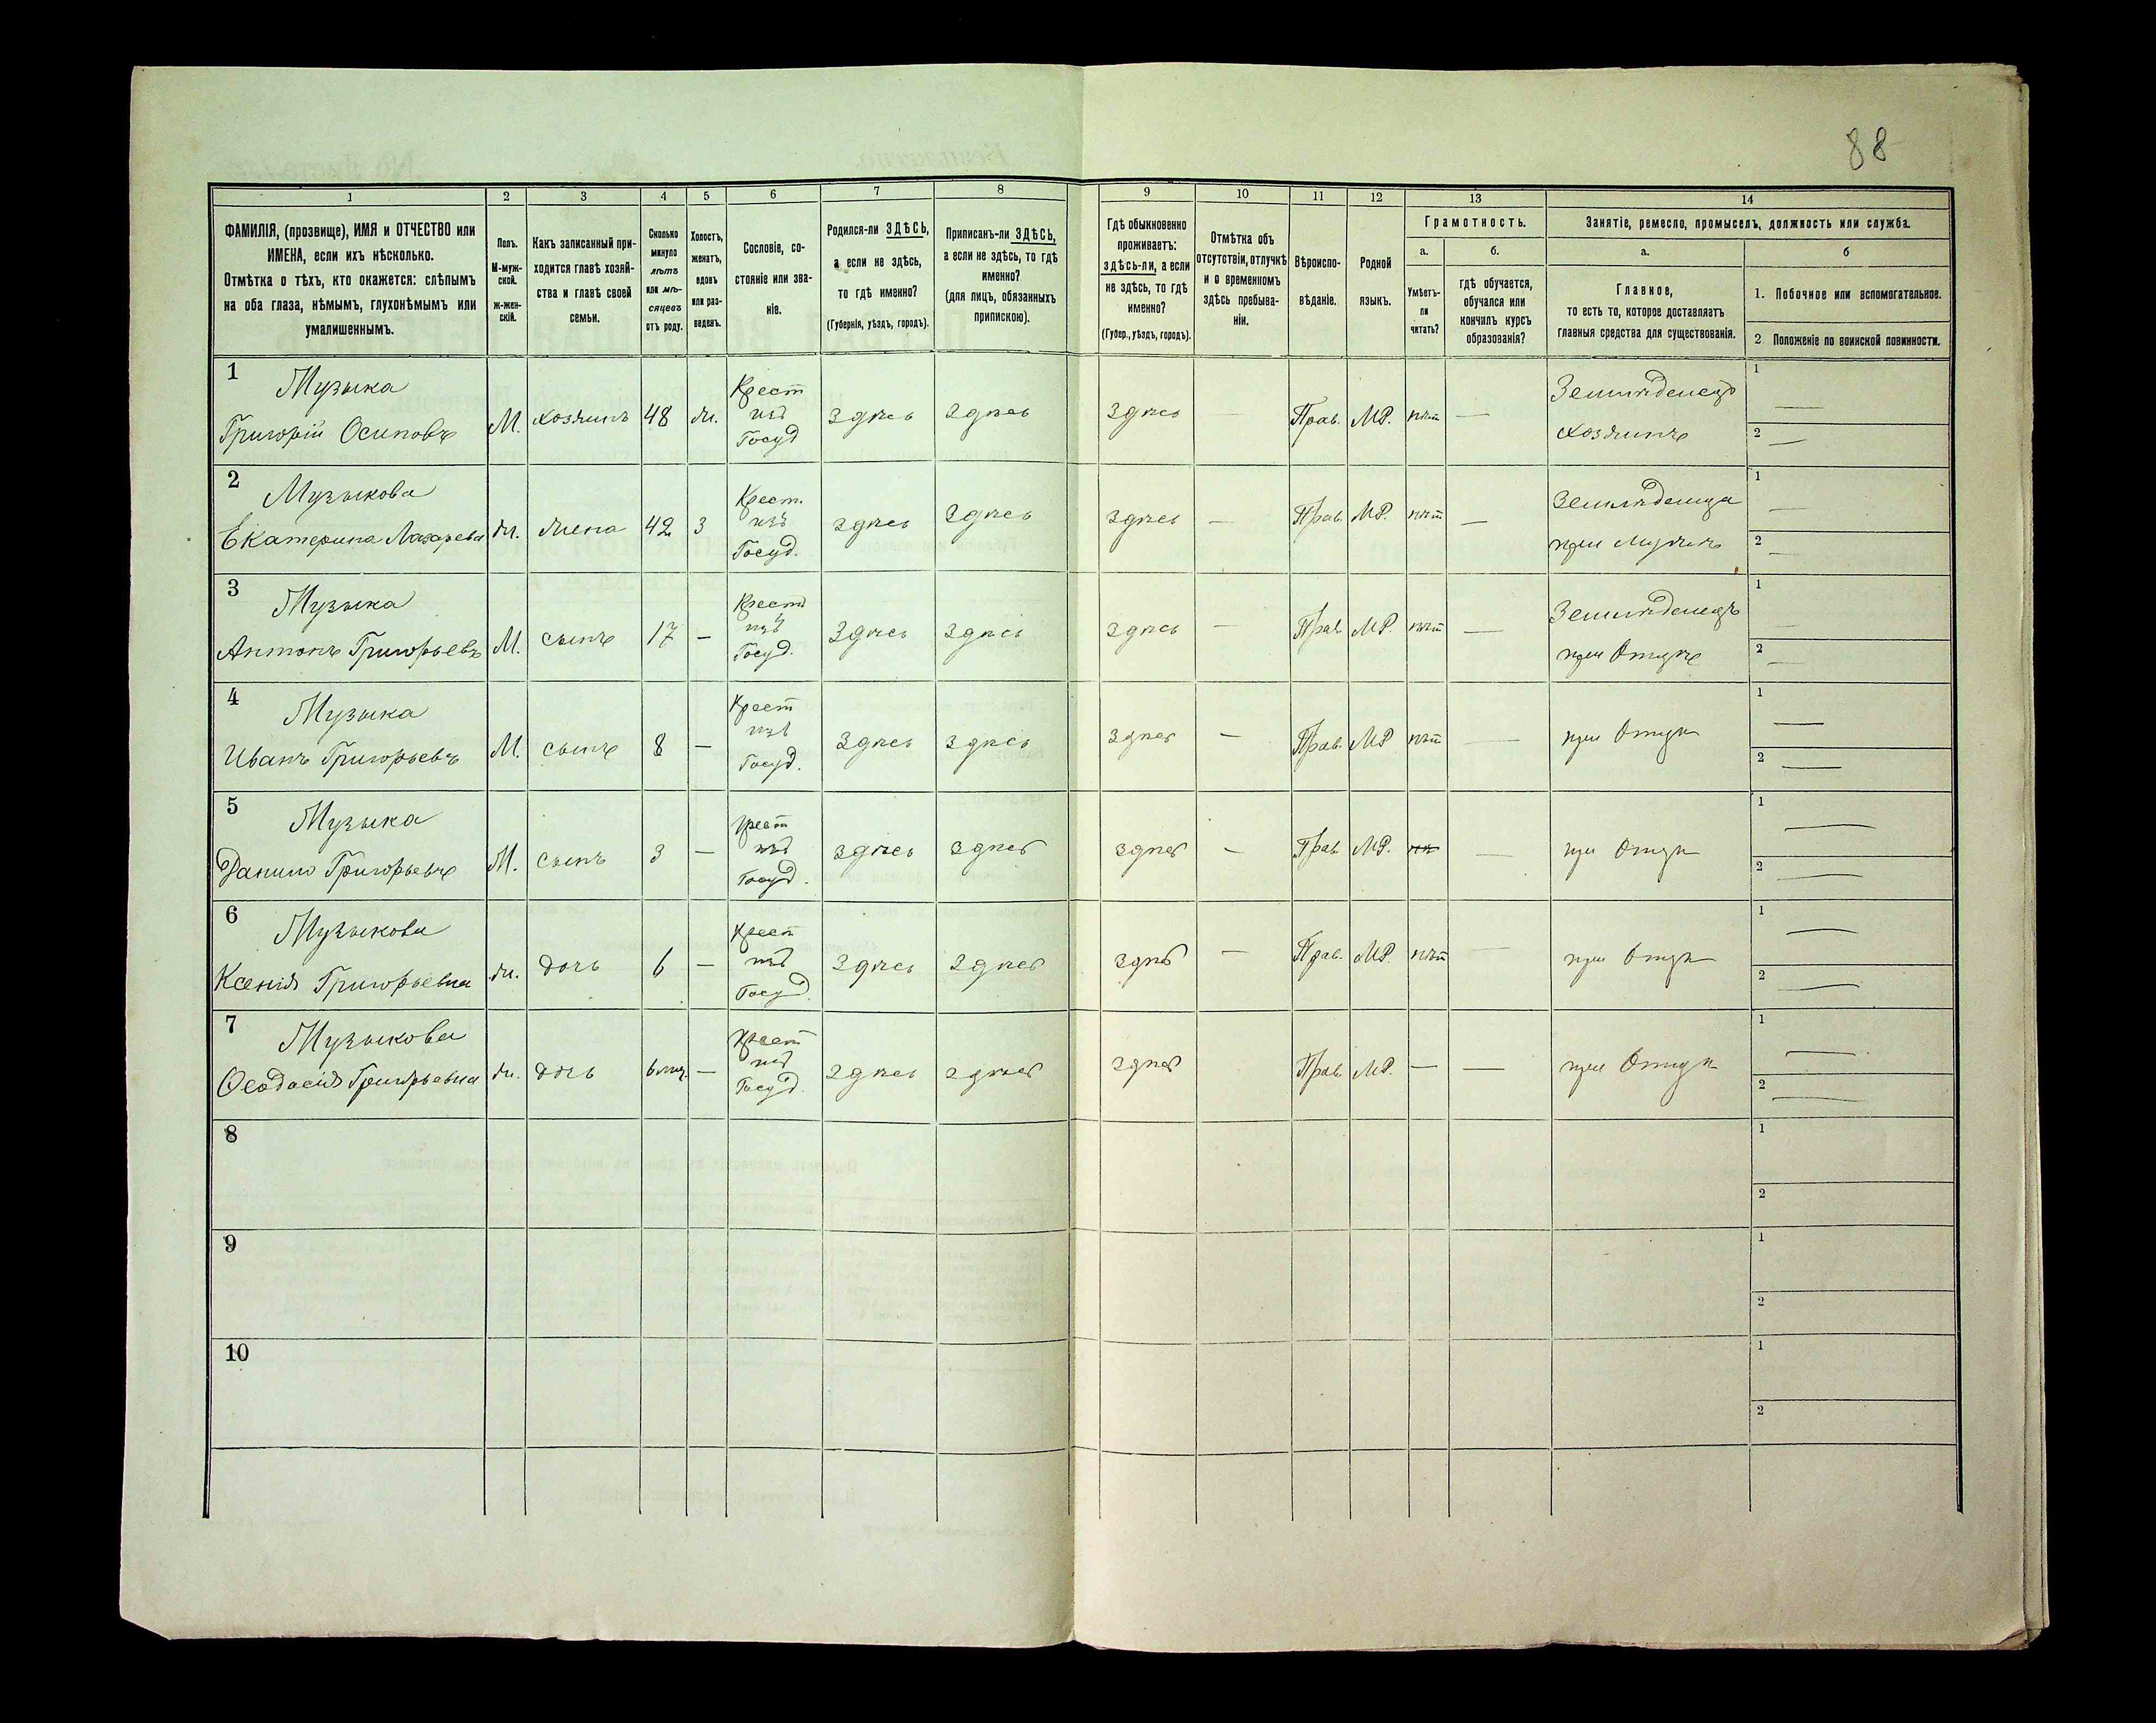 88
1 2 3 4 5 6 7 8 9 10 11 12 13 14
ФАМИЛІЯ, (прозвище), ИМЯ и ОТЧЕСТВО или
ИМЕНА, если ихъ нѣсколько.
Отмѣтка о тѣхъ, кто окажется: слѣпымъ
на оба глаза, нѣмымъ, глухонѣмымъ или
умалишеннымъ.
Полъ.
М-муж-
ской.
ж-жен-
скій.
Какъ записанный при-
ходится главѣ хозяй-
ства и главѣ своей
семьи.
Сколько
минуло
лѣтъ
или мѣ-
сяцевъ
отъ роду.
Холостъ,
женатъ,
вдовъ
или раз-
веденъ.
Сословіе, со-
стояніе или зва-
ніе.
Родился-ли ЗДѢСЬ,
а если не здѣсь,
то гдѣ именно?
(Губернія, уѣздъ, городъ).
Приписанъ-ли ЗДѢСЬ,
а если не здѣсь, то гдѣ
именно?
(для лицъ, обязанныхъ
припискою).
Гдѣ обыкновенно
проживаетъ:
здѣсь-ли, а если
не здѣсь, то гдѣ
именно?
(Губер., уѣздъ, городъ).
Отмѣтка объ
отсутствіи, отлучкѣ
и о временномъ
здѣсь пребыва-
ніи.
Вѣроиспо-
вѣданіе.
Родной
языкъ.
Грамотность.
а.
Умѣетъ-
ли
читать?
б.
гдѣ обучается,
обучался или
кончилъ курсъ
образованія?
Занятіе, ремесло, промыселъ, должность или служба.
а.
Главное,
то есть то, которое доставляетъ
главныя средства для существованія.
б
1. Побочное или вспомогательное.
2. Положеніе по воинской повинности.
1 Музыка Крест Землѣделецъ 1 —
Григорій Осиповъ М. хозяинъ 48 ж. изъ здѣсь здѣсь здѣсь — Прав. МР. нѣт —
Госуд хозяинъ 2 —
2 Музыкова Крест. Землѣделица 1 —
Екатерина Лазарева ж. жена 42 З изъ здѣсь здѣсь здѣсь — Прав. МР. нѣт —
Госуд. при Мужѣ 2 —
3 Музыка Крест Землѣделецъ 1 —
Антонъ Григорьевъ М. сынъ 17 — изъ здѣсь здѣсь здѣсь — Прав МР. нѣт —
Госуд. при Отцѣ 2 —
4 Музыка Крест 1 —
Иванъ Григорьевъ М. сынъ 8 — изъ здѣсь здѣсь здѣсь — Прав. МР. нѣт — при Отцѣ
Госуд. 2 —
5 Музыка Крест 1 —
Данило Григорьевъ М. сынъ 3 — изъ здѣсь здѣсь здѣсь — Прав МР. — при Отцѣ
Госуд. 2 —
6 Музыкова Крест 1 —
Ксенія Григорьевна ж. дочь 6 — изъ здѣсь здѣсь здѣсь — Прав. МР. нѣт — при Отцѣ
Госуд. 2 —
7 Музыкова Крест 1 —
Ѳеодосія Григорьевна ж. дочь 6 мѣц. — изъ здѣсь здѣсь здѣсь Прав. МР. — — при Отцѣ
Госуд. 2 —
8 1
2
9 1
2
10 1
2